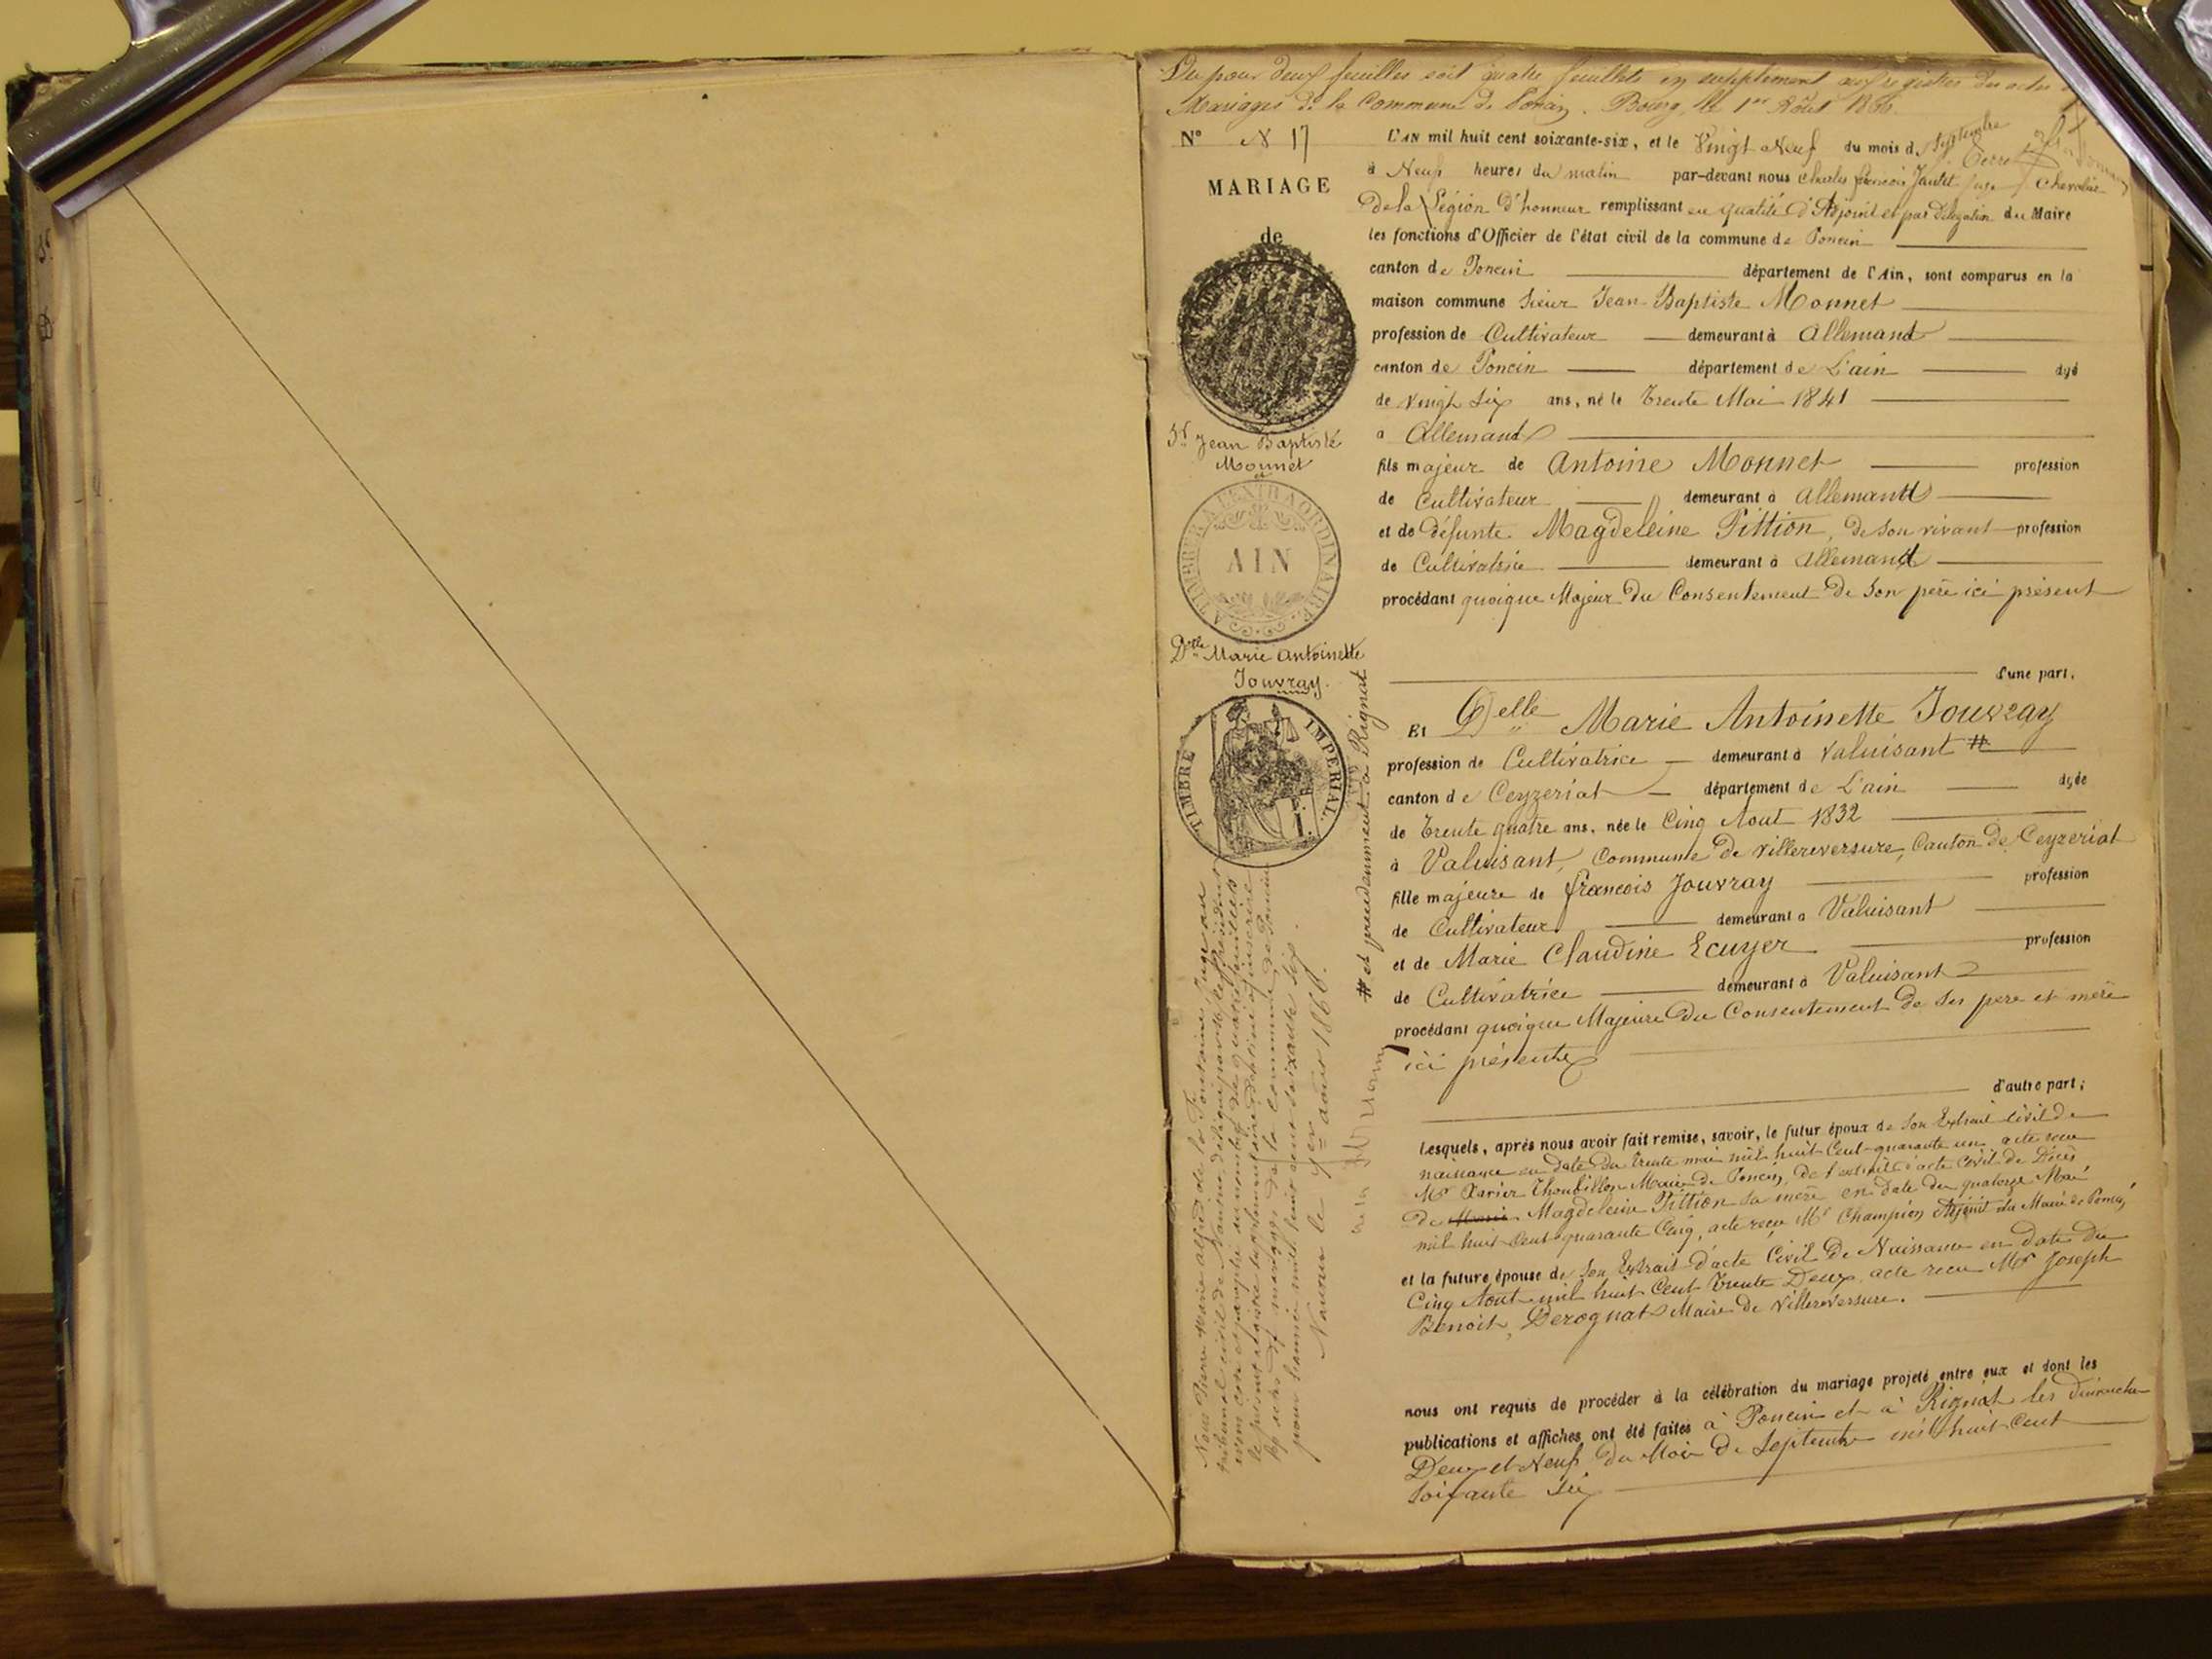 Vu pour deux feuilles soit quatre feuillets en supplément au registre des actes de
Mariages de la Commune de Poncin. Bourg, le 1er Août 1866.
N° N 17
MARIAGE
de
Sr Jean Baptiste
Monnet
et
A TIMBRER A L'EXTRAORDINAIRE
AIN
Dlle Marie Antoinette
Jouvray.
TIMBRE IMPERIAL.
Nous Pierre Marie alfred de la
tribunal civil de Nantua, délégué par Mr le Président
avons coté et paraphé au nombre de quatre feuillets
le présent registre supplémentaire destiné à inscrire
les actes de mariages de la commune de Poncin
pour l'année mil huit cent soixante six.
Nantua le 9er août 1866.
# et précédemment à Rignat
L'AN mil huit cent soixante-six, et le Vingt Neuf du mois de Septembre
à Neuf heures du matin par-devant nous Charles francois Jantet juge Chevalier
De la Légion d'honneur remplissant en qualité d'Adjoint et par Délégation du Maire
les fonctions d'Officier de l'état civil de la commune de Poncin
canton de Poncin département de l'Ain, sont comparus en la
maison commune Sieur Jean Baptiste Monnet
profession de Cultivateur demeurant à Allemand
canton de Poncin département de L'ain âgé
de vingt six ans, né le Trente Mai 1841
à Allemand
fils majeur de Antoine Monnet profession
de Cultivateur demeurant à Allemand
et de défunte Magdeleine Pittion, de son vivant profession
de Cultivatrice demeurant à Allemand
procédant quoique Majeur du Consentement de son père ici présent
d'une part,
Et Delle Marie Antoinette Jouvray
profession de Cultivatrice demeurant à Valuisant #
canton de Ceyzeriat département de L'ain âgée
de Trente quatre ans, née le Cinq Aout 1832
à Valuisant, Commune de Villereversure, Canton de Ceyzeriat
fille majeure de francois Jouvray profession
de Cultivateur demeurant à Valuisant
et de Marie Claudine Ecuyer profession
de Cultivatrice demeurant à Valuisant
procédant quoique Majeure du Consentement de ses père et mère
ici présents
d'autre part;
Lesquels, après nous avoir fait remise, savoir, le futur époux de son Extrait civil de
naissance en date du trente mai mil huit Cent quarante un acte recu
Mr Xavier Thoubillon Maire de Poncin, de l'extrait d'acte civil de Décès
de Marie Magdeleine Pittion sa mère en date du quatorze Mai
mil huit Cent quarante Cinq, acte recu Mr Champion Adjoint du Maire de Poncin,
et la future épouse de son Extrait d'acte Civil de Naissance en date du
Cinq Aout mil huit Cent Trente Deux, acte recu Mr Joseph
Benoit, Derognat Maire de Villereversure.
nous ont requis de procéder à la célébration du mariage projeté entre eux et dont les
publications et affiches ont été faites à Poncin et à Rignat les Dimanche
Deux et Neuf du Mois de Septembre mil huit Cent
soixante Six